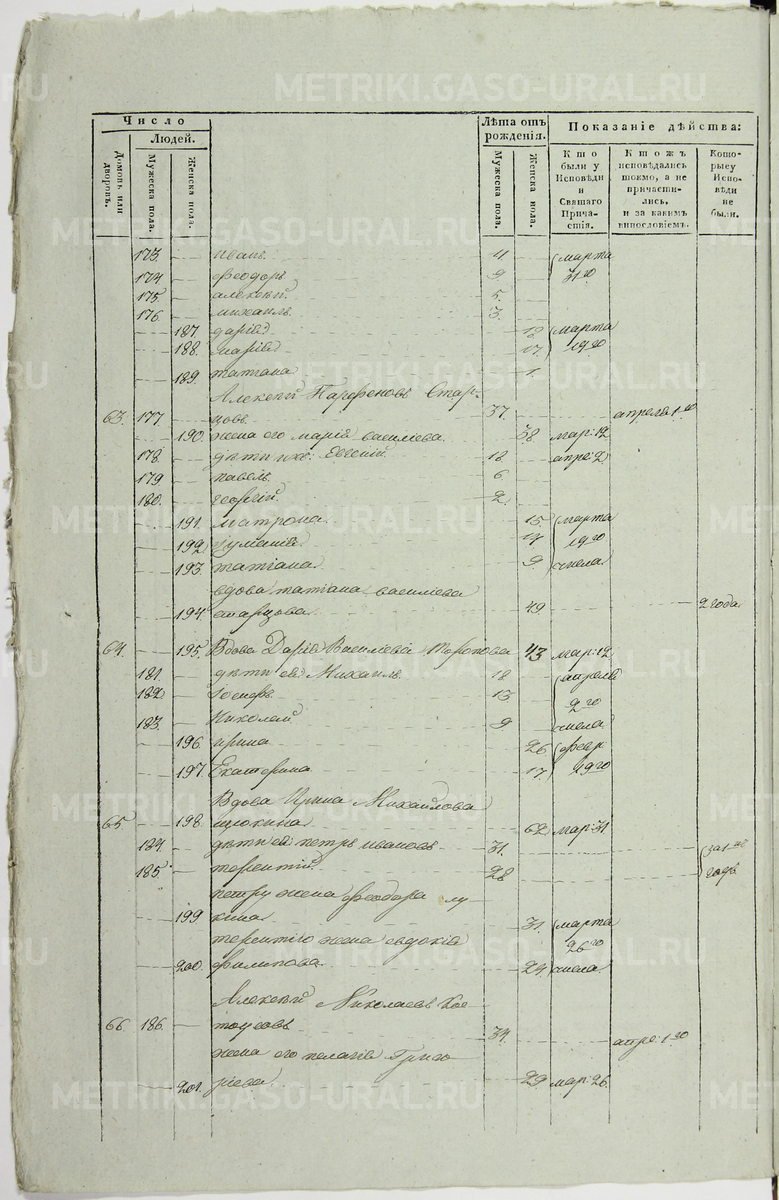 METRIKI.GASO-URAL.RU
Число
Людей.
Домовъ или дворовъ.
Мужеска пола.
Женска пола.
Лѣта отъ рожденія.
Мужеска пола.
Женска пола.
Показаніе дѣйства:
Кто были у Исповѣди и Святаго Причастія.
Ктожъ исповѣдались токмо, а не причастились, и за какимъ винословіемъ.
Которые у Исповѣди не были.
173. иванъ 11 марта
174 феодоръ 9 31го
175 алексѣй. 5.
176. михаилъ. 3.
187 дарія 19 марта
188. марія 17. 19го
189 татіана 1
Алексѣй Парфеновъ Стар-
63. 177 цовъ 37. апреля 1го
190. жена его марія василиева 38 мар: 12
178. дѣти ихъ: Евгений 18 апре: 2
179 павелъ 6
180. георгій 2.
191. матрона 15. марта
192 14 19го
193. татіана 9 числа
вдова татіана василиева
194 старцова 49. 2 года
64. 195. Вдова Дарія Василиева 43 мар: 12
181. дѣти ея Михаилъ 18 апреля
182. Іосифъ 13 2го
183. Николай 9 числа
196. ирина 26 февр
197. Екатерина 17. 19го
Вдова Ирина Михайлова
65 198. щокина 62 мар: 31
184. дѣти ей петръ ивановъ 31. за 1ый
185. терентій 28 годъ
петру жена феодора лу
199 кина 31. марта
терентію жена евдокія 26го
200. филипова 24. числа
Алексѣй Николаевъ
66 186. 34. апре: 1го
жена его пелагія Григо
201. рієва 29 мар: 26.